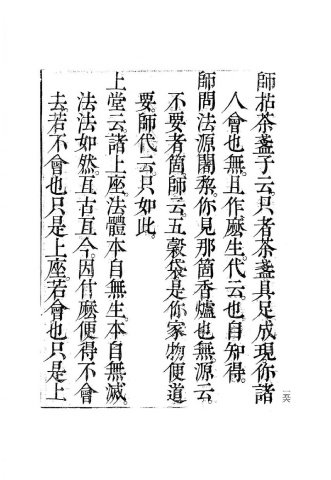 師拈茶盞子云。只者茶盞具足成現。你諸
人會也無。且作麼生。代云。也自知得。
師問法源闍棃。你見那箇香爐也無。源云。
不要者箇。師云。五糓袋是你家物。便道
要。師代云。只如此。
上堂云。諸上座法體本自無生。本自無滅。
法法如然。亙古亙今。因什麼便得不會
去。若不會也只是上座。若會也只是上
一六